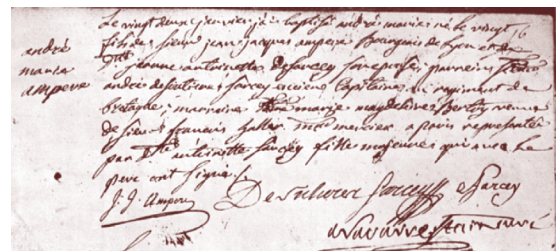 andré
marie
ampere
Le vingt deux janvier j'ai baptisé andré marie né le vingt
fils de sieur jean jacques ampere Bourgeois de Lyon et de
jeanne antoinette Desarcey son epouse parrein
andré desutieres sarcey ancien Capitaine au regiment de
Bretagne, marraine marie magdeleine Bertoy veuve
de sieur francois haller md mercier a paris representée
par antoinette sarcey fille majeure qui avec le
pere ont signé
J. J. Ampere
Desutieres sarcey
sarcey